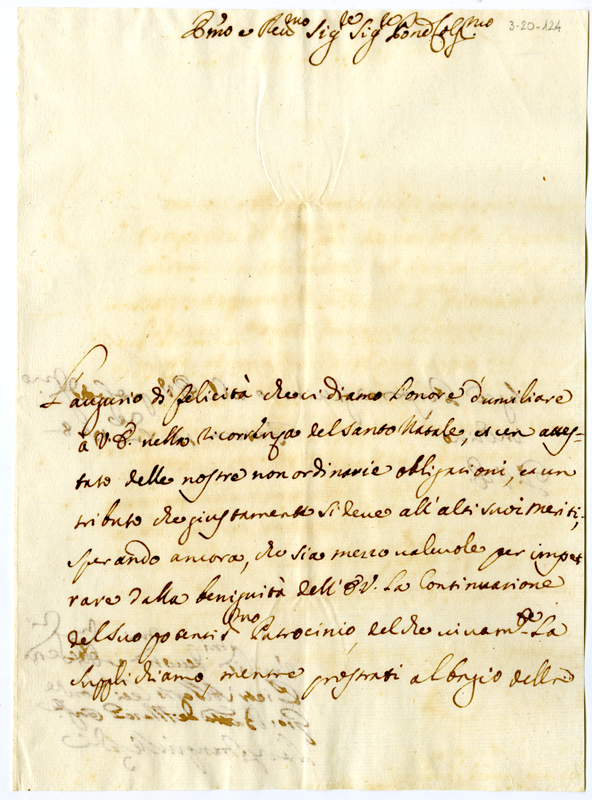 Em̃o e Reu.mo Sig.re Sig.re Prõne Col.mo
3-20-124
L'augurio di felicità che ci diamo l'onore d'umiliare
à V. E. nella ricorrenza del Santo Natale, è un attes-
tato delle nostre non ordinarie obligazioni, è un
tributo che giustamente si deve all'alti suoi meriti;
sperando ancora, che sia mezzo valevole per impet
rare dalla benignità dell'E.V. la Continuazione
del suo potentis.mo Patrocinio, del che vivam.te La
supplichiamo, mentre prostrati al bagio della